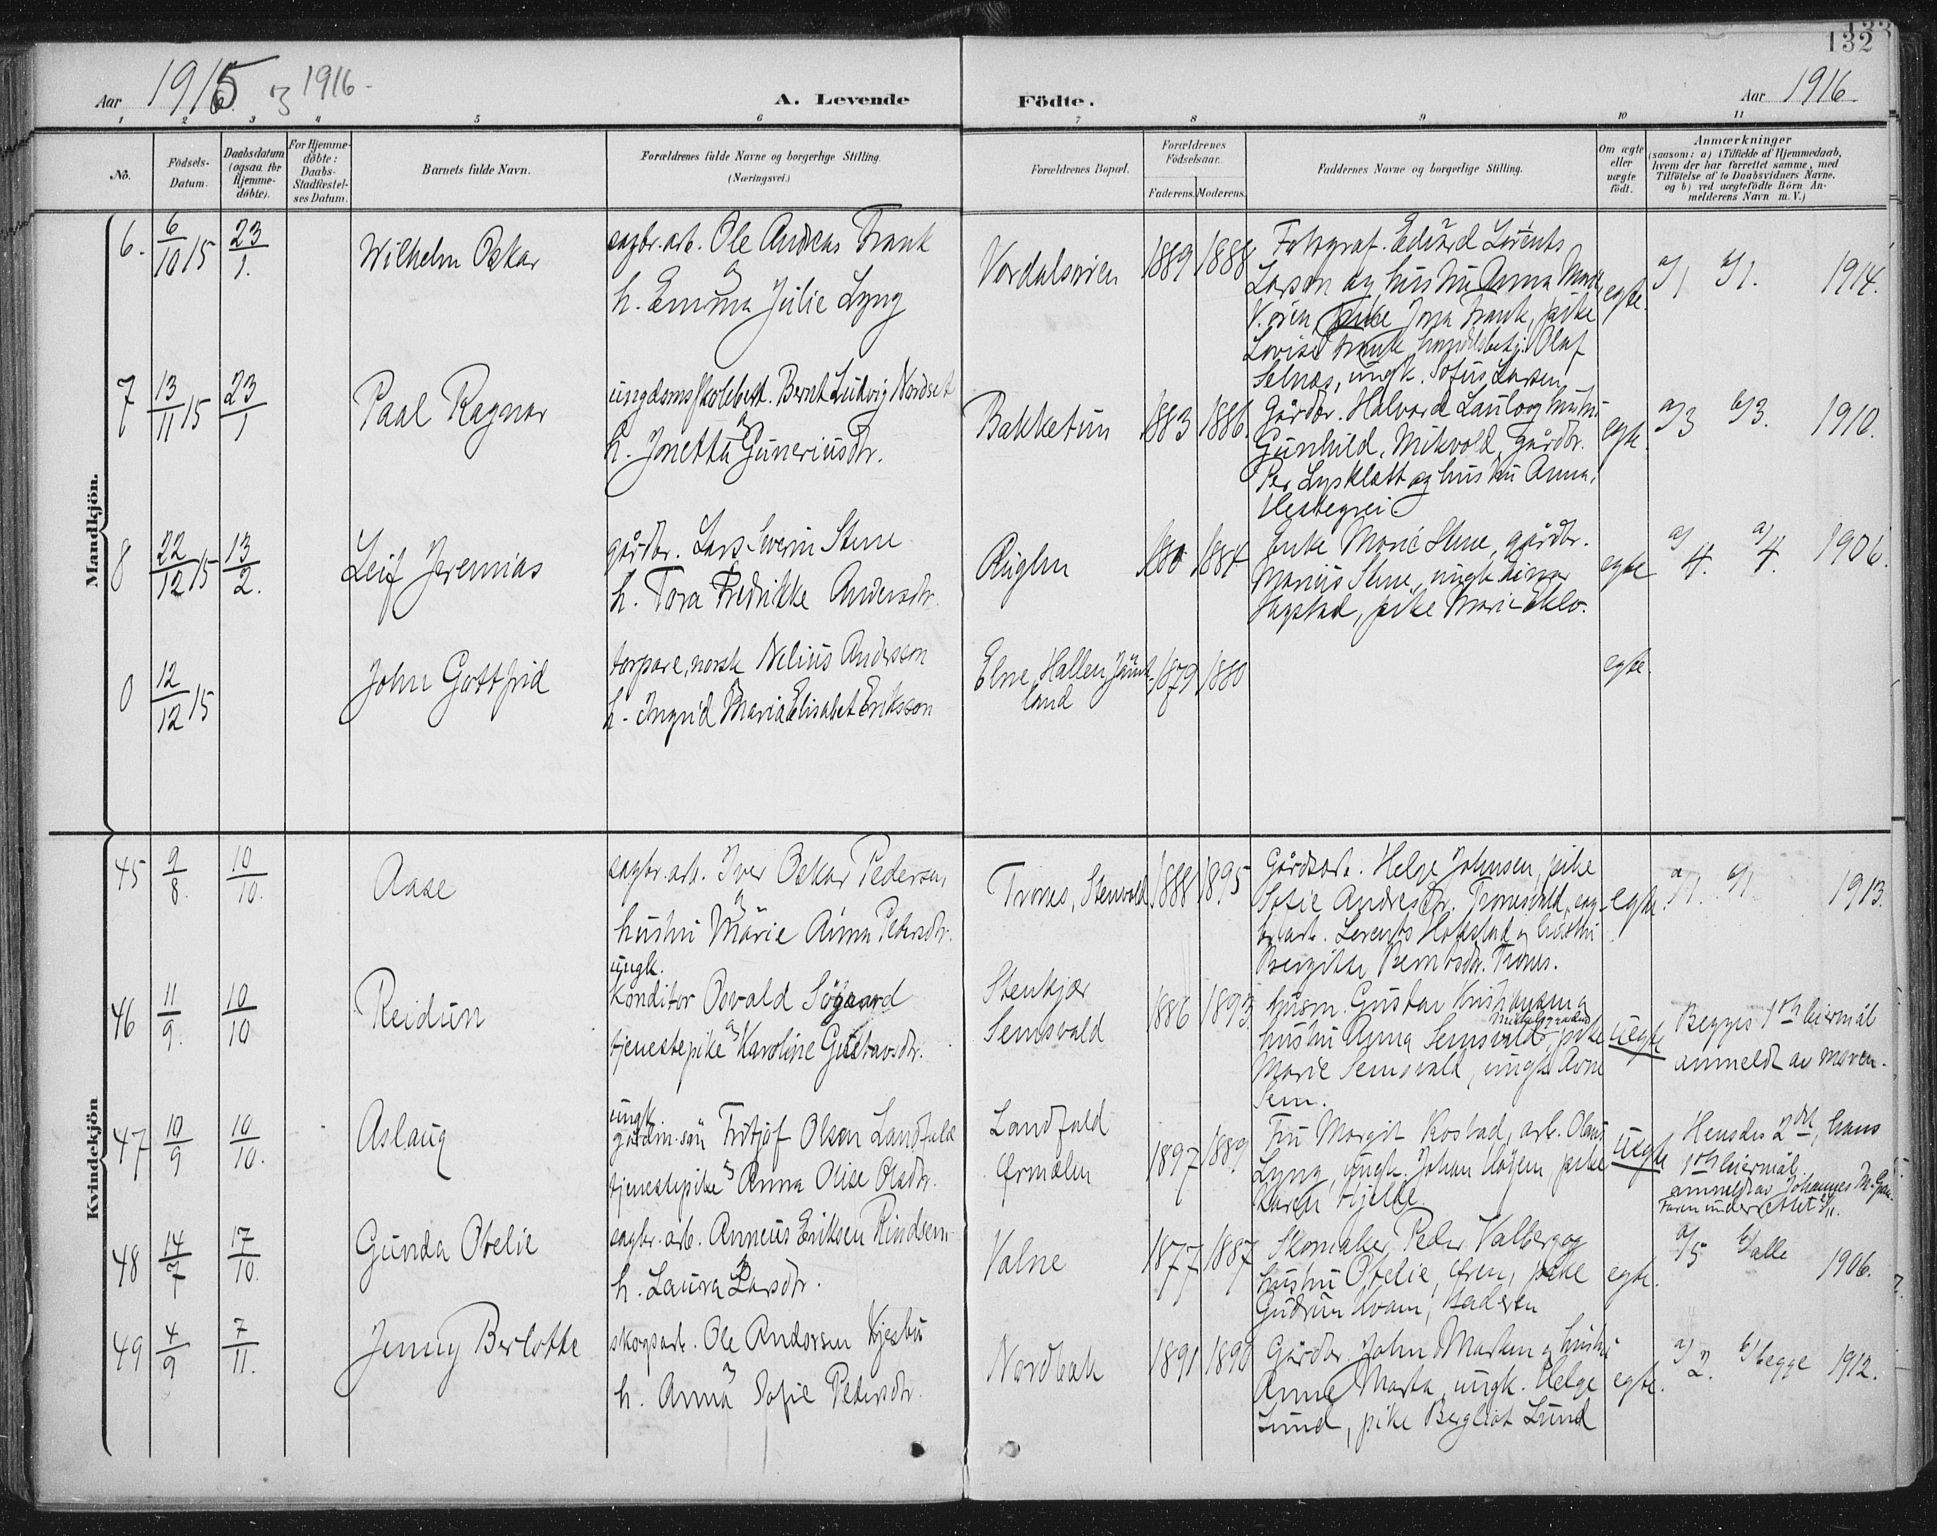 132
Aar 1915 og 1916.
A. Levende Födte.
Aar 1916.
1 2 3 4 5 6 7 8 9 10 11
No.
Födsels-Datum.
Daabsdatum (ogsaa for Hjemmedöbte).
For Hjemmedöbte: Daabs-Stadfæstelses Datum.
Barnets fulde Navn.
Forældrenes fulde Navne og borgerlige Stilling. (Næringsvei.)
Forældrenes Bopæl.
Forældrenes Födselsaar.
Faderens. Moderens.
Faddernes Navne og borgerlige Stilling.
Om ægte eller uægte födt.
Anmærkninger
(saasom: a) i Tilfælde af Hjemmedaab, hvem der har forrettet samme, med Tilföielse af to Daabsvidners Navne, og b) ved uægtefödte Börn Anmelderens Navn m. V.)
Mandkjön.
6. 6/10 15 23/1. Wilhelm Oskar
sagbr. arb. Ole Andreas Frank
og
h. Emma Julie Lyng
Verdalsøren 1889 1888
Fotograf. Edvard Lorents
Larsen og hustru Anna
V.øren, pike Jora Frank, pike
Lovise Frank, handelsbetj. Olaf
Selnæs, ungk. Sofus Larsen
egte. a/1 b/1. 1914.
7 13/11 15 23/1 Paal Ragnar
ungdomsskolebest. Bernt Ludvig Nordset
og
h. Jonetta Guneriusdtr.
Bakketun 1883 1886.
Gårdbr. Halvard Laulo og hustru
Gunhild, Mikvold, gårdbr.
Per Lysklætt og hustru Anna,
Hestegrei
egte. a/3 b/3. 1910.
8 22/12 15 13/2. Leif Jeremias
gårdbr. Lars Severin Stene
h. Tora Fredrikke Andersdtr.
Ruglen 1884
Enke Marie Stene, gårdbr.
Marius Stene, ungk. Einar
Hagstad, pike Marie Eklo.
egte a/4. a/4. 1906.
0 12/12 15 John Gottfrid
torpare, norsk Nelius Andersson
h. Ingrid Maria Elisabet Eriksson
Hallen, Jämtland 1879 1880
egte.
Kvindekjön
45 9/8. 10/10. Aase
sagbr. arb. Iver Oskar Pedersen,
og
hustru Marie Anna Pedersdtr.
Trones, Stensvald 1888 1895
Gårdsarb. Helge Johnsen, pike
Sofie Andresdtr. Tronesvald, sag-
br.arb. Lorents Hofstad og hustru
Birgitte Berntsdtr. Trones.
egte. a/1. b/1. 1913.
46 11/9. 10/10 Reidun
ungk.
Konditor Osvald Søgaard
og
tjenestepike Karoline Gustavsdtr.
Stenkjær
Semsvald
1886 1893.
husm. Gustav Kristiansen og
hustru Anna Semsvald, pike
Marie Semsvald, ungk. Arne
Sem.
uegte Begges 1ste leiermål
anmeldt av moren.
47 10/9 10/10. Aslaug
ungk.
gårdm. søn Fritjof Olsen Landfald
og
tjenestepike Anna Olise Olsdtr.
Landfald
Ørmelen
1897 1889
Fru Margit Rostad, arb. Olaus
Lyng, ungk. Johan Høgem, pike
Karen Hjelde
uegte Hendes 2det, hans
1ste leiermål.
anmeldt av Johannes
Faren underrettet
48 14/7 17/10. Gunda Otelie
sagbr. arb. Anneus Eriksen Rindsem
og
h. Laura Larsdtr.
Valne 1877 1887
Skomaker Peder Valberg og
hustru Otelie, øren, pike
Gudrun Kvam, Faderen
egte. a/5 b/alle 1906.
49 4/9 7/11. Jenny Berlotte
skogsarb. Ole Andersen Kjesbu
og
h. Anna Sofie Pedersdtr.
Nordbak 1891 1890
Gårdbr. John Marken og hustru
Anne Marta, ungk. Helge
Lund, pike Bergliot Lund
egte. a/2. b/begge 1912.